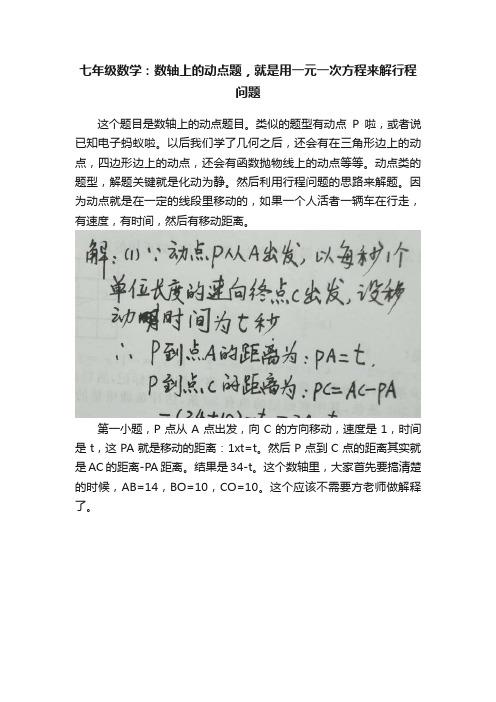 七年级数学：数轴上的动点题，就是用一元一次方程来解行程
问题
这个题目是数轴上的动点题目。类似的题型有动点P啦，或者说
已知电子蚂蚁啦。以后我们学了几何之后，还会有在三角形边上的动
点，四边形边上的动点，还会有函数抛物线上的动点等等。动点类的
题型，解题关键就是化动为静。然后利用行程问题的思路来解题。因
为动点就是在一定的线段里移动的，如果一个人活者一辆车在行走，
有速度，有时间，然后有移动距离。
解：(1)∵动点P从A出发，以每秒1个
单位长度的速向终点C出发，设移
动时间为t秒
∴ P到点A的距离为：PA=t.
P到点C的距离为：PC=AC-PA
第一小题，P点从A点出发，向C的方向移动，速度是1，时间
是t，这PA就是移动的距离：1xt=t。然后P点到C点的距离其实就
是AC的距离-PA距离。结果是34-t。这个数轴里，大家首先要搞清楚
的时候，AB=14，BO=10，CO=10。这个应该不需要方老师做解释
了。